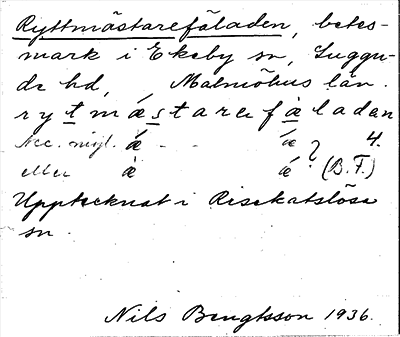 Ryttmästarefäladen, betes-
mark i Ekeby sn, Luggu-
de hd, Malmöhus län.
rytmǽstarefὰladan
Acc. möjl. ǽ - - ǽ ? 4.
eller ὰ ά (B. F.)
Upptecknat i Risekatslösa
sn.
Nils Bengtsson 1936.